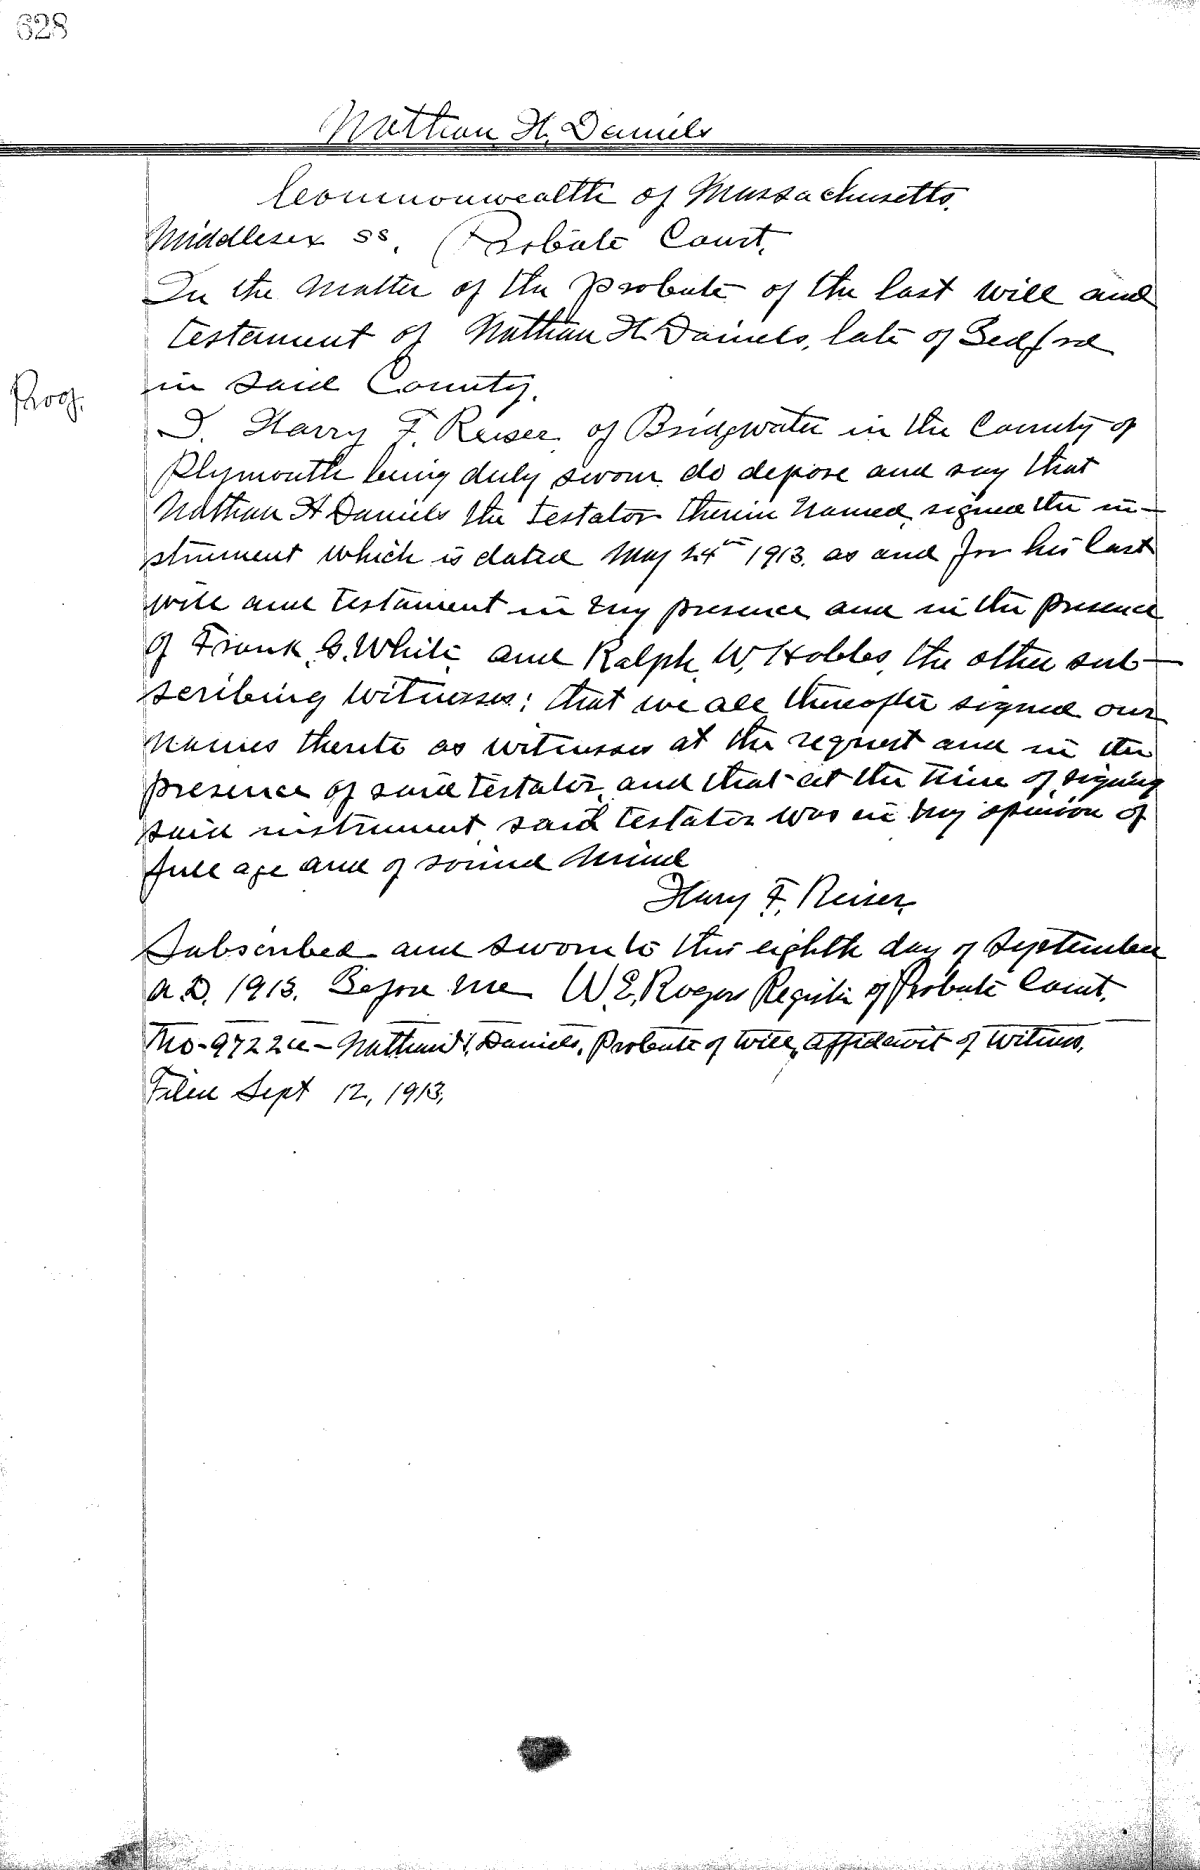 628
Nathan H. Daniels
Commonwealth of Massachusetts.
Middlesex ss. Probate Court.
In the matter of the probate of the last will and
testament of Nathan H. Daniels, late of Bedford
in said County.
Proof.
I. Harry F. Reiser, of Bridgwater in the County of
Plymouth being duly sworn do depose and say that
Nathan H Daniels the testator therein named, signed the in-
strument which is dated May 24th 1913. as and for his last
will and testament in my presence and in the presence
of Frank. G. White, and Ralph. W. Hobbs, the other sub-
scribing witnesses: that we all thereafter signed our
names thereto as witnesses at the request and in the
presence of said testator, and that at the time of signing
said instrument, said testator was in my opinion of
full age and of sound mind
Harry F. Reiser.
Subscribed and sworn to this eighth day of September
A.D. 1913. Before me W.E. Rogers Register of Probate Court.
No- - Nathan H. Daniels. Probate of Will, affidavit of Witness.
Filed Sept 12, 1913.